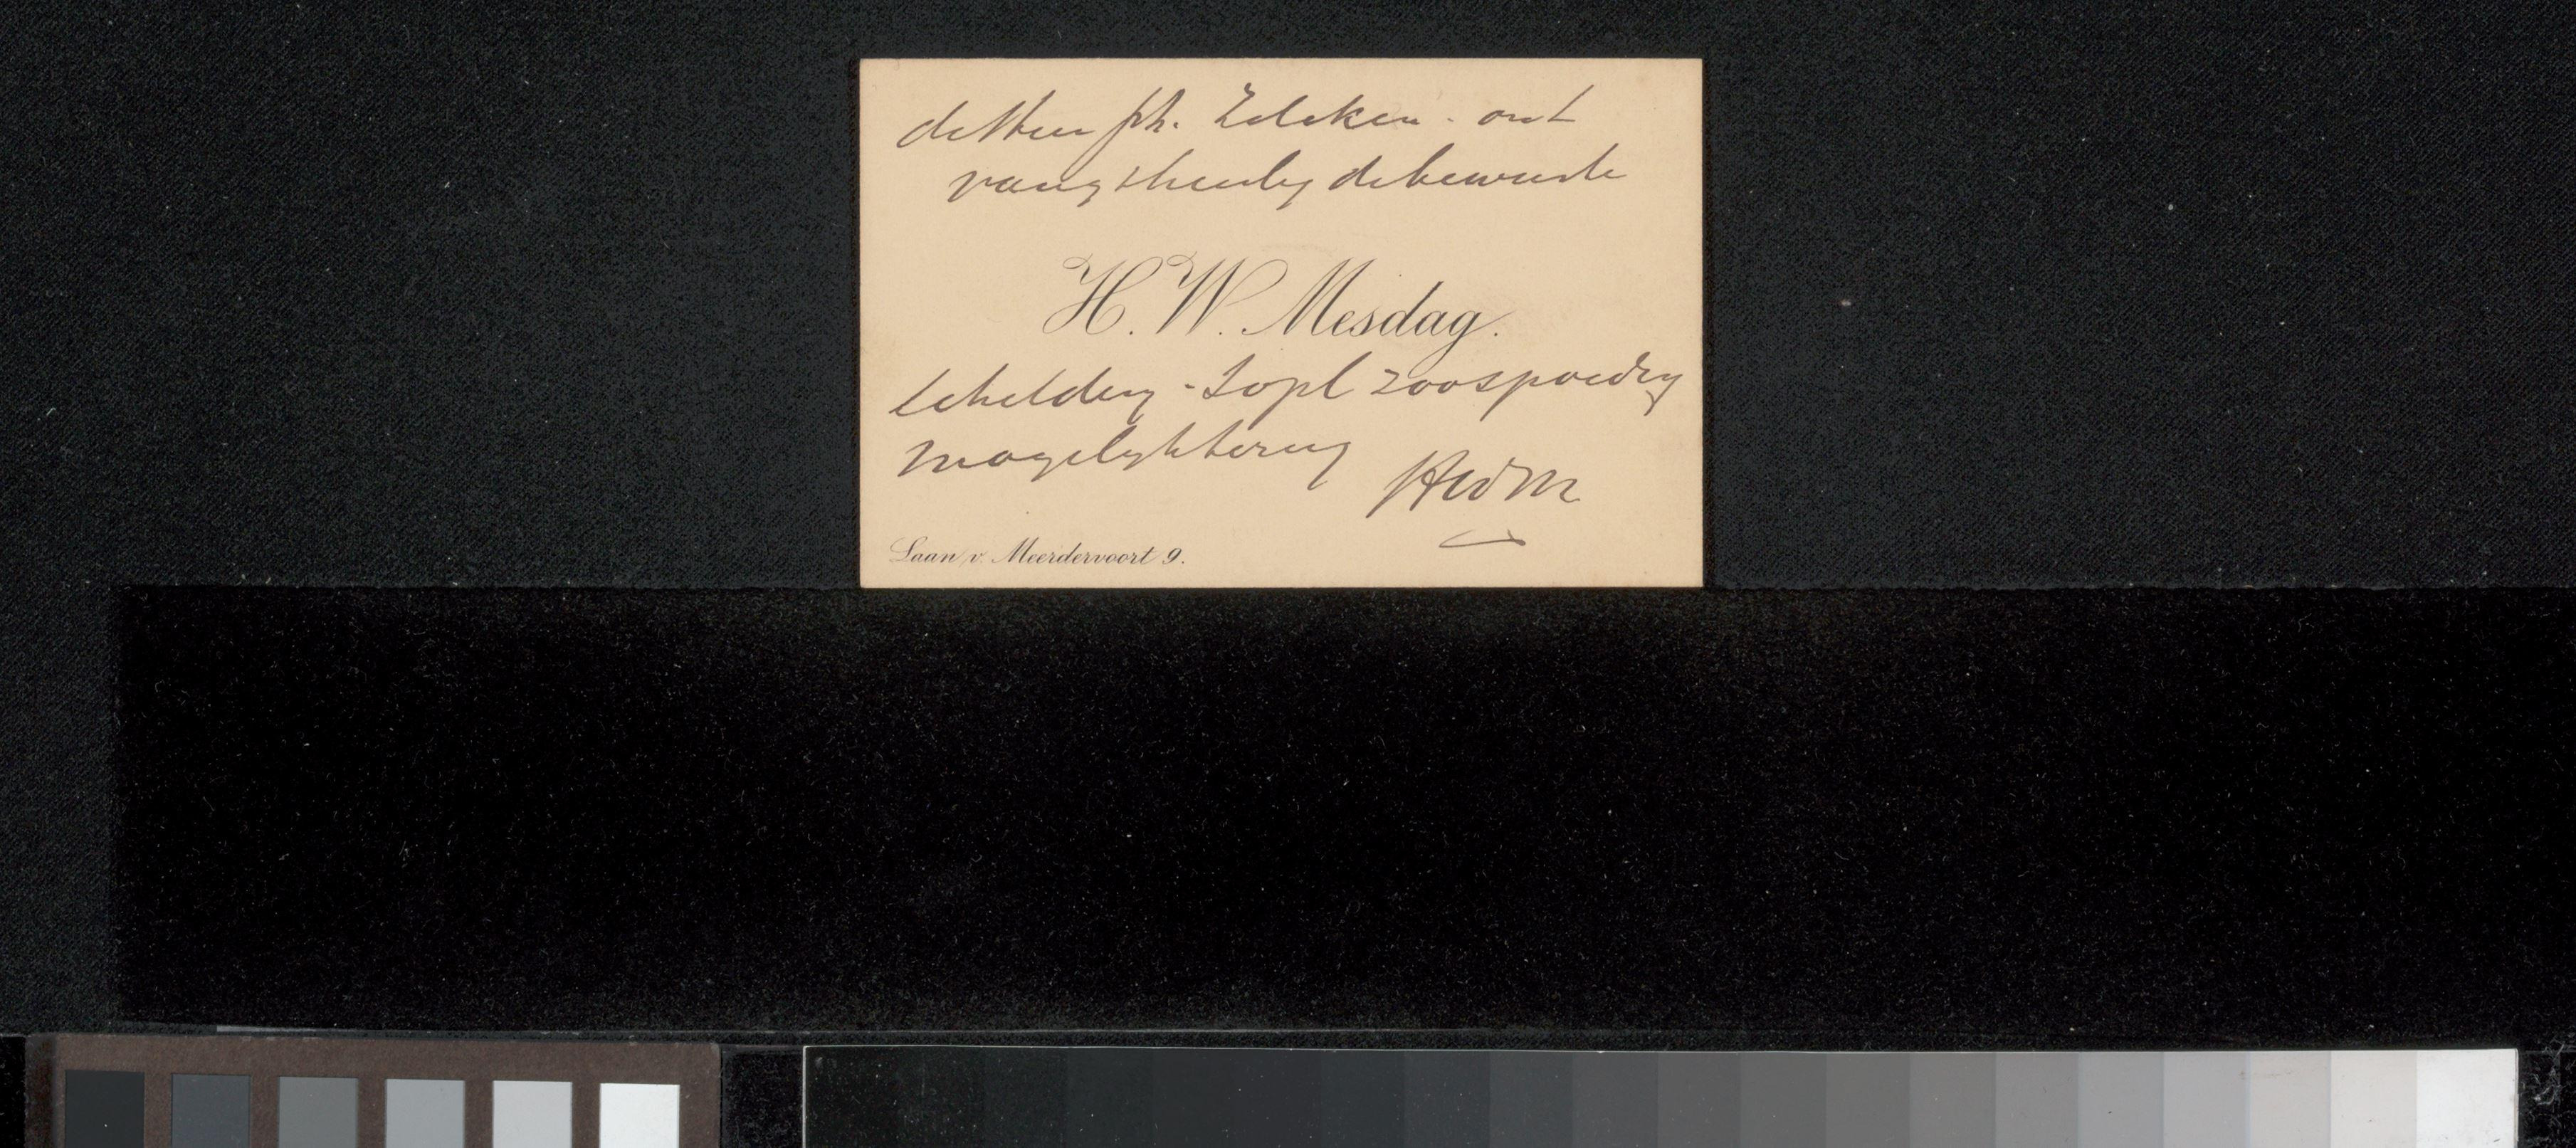 de Heer Ph. Zilcken. ont
vang hierby de bewuste
H. W. Mesdag.
schildery - s.v.pl zoospoedig
mogelyk terug
HWM
Laan v. Meerdervoort 9.